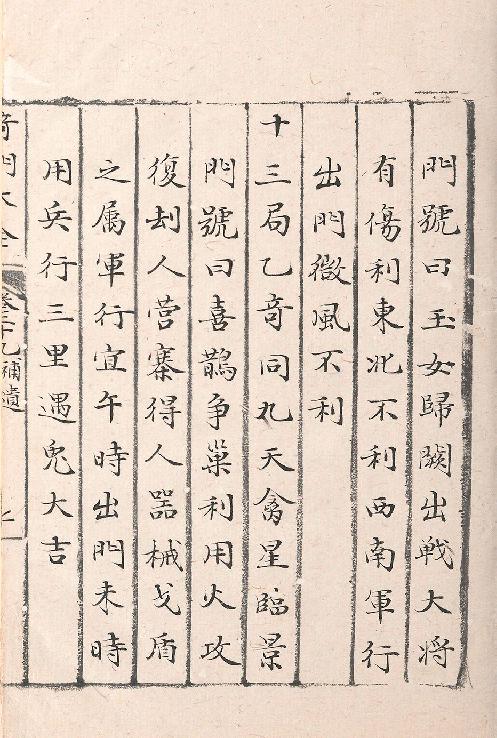 門號曰玉女歸闕出戰大将
有傷利東北不利西南軍行
出門微風不利
十三局乙竒同九天禽星臨景
門號曰喜鵲争巢利用火攻
復刦人营寨得人噐械戈盾
之属軍行宜午時出門未時
用兵行三里遇兎大吉
竒門大全 卷二十九補遺